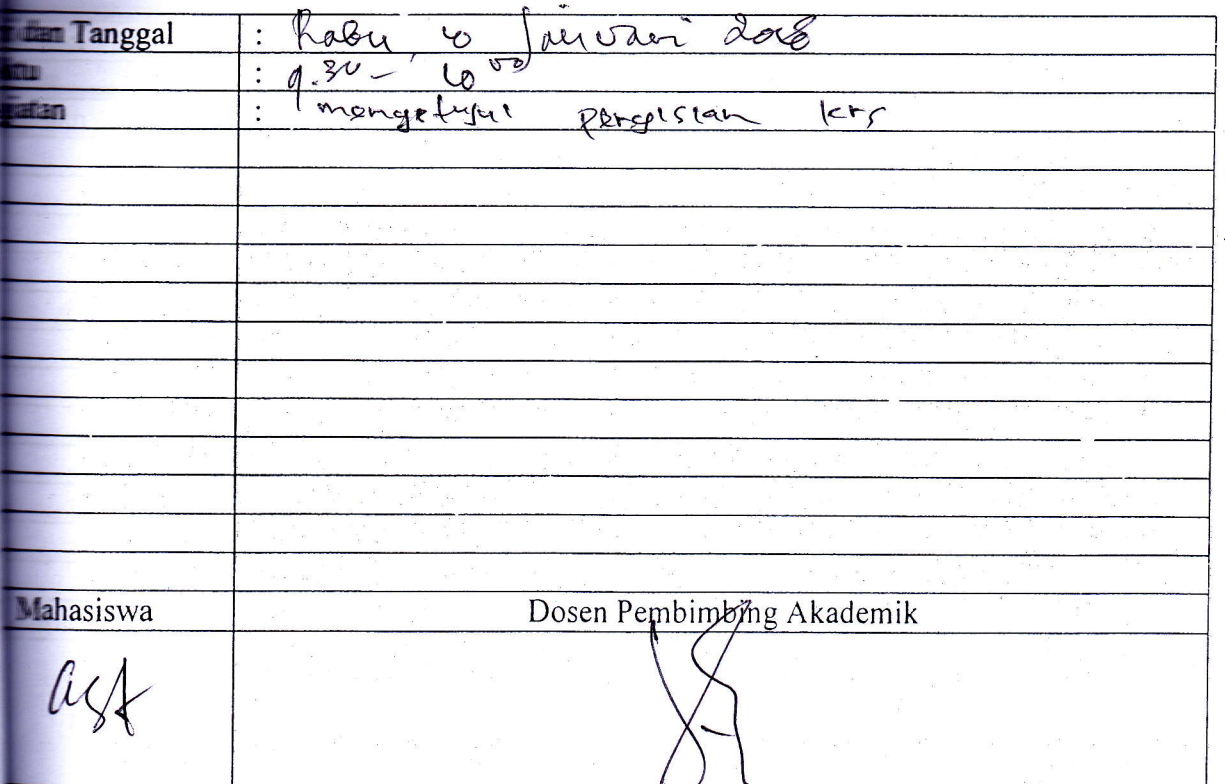 dan Tanggal : Rabu, 10 Januari 2018
: 9.30 - 10 00
: mengetujui pengisian krs
Mahasiswa Dosen Pembimbing Akademik